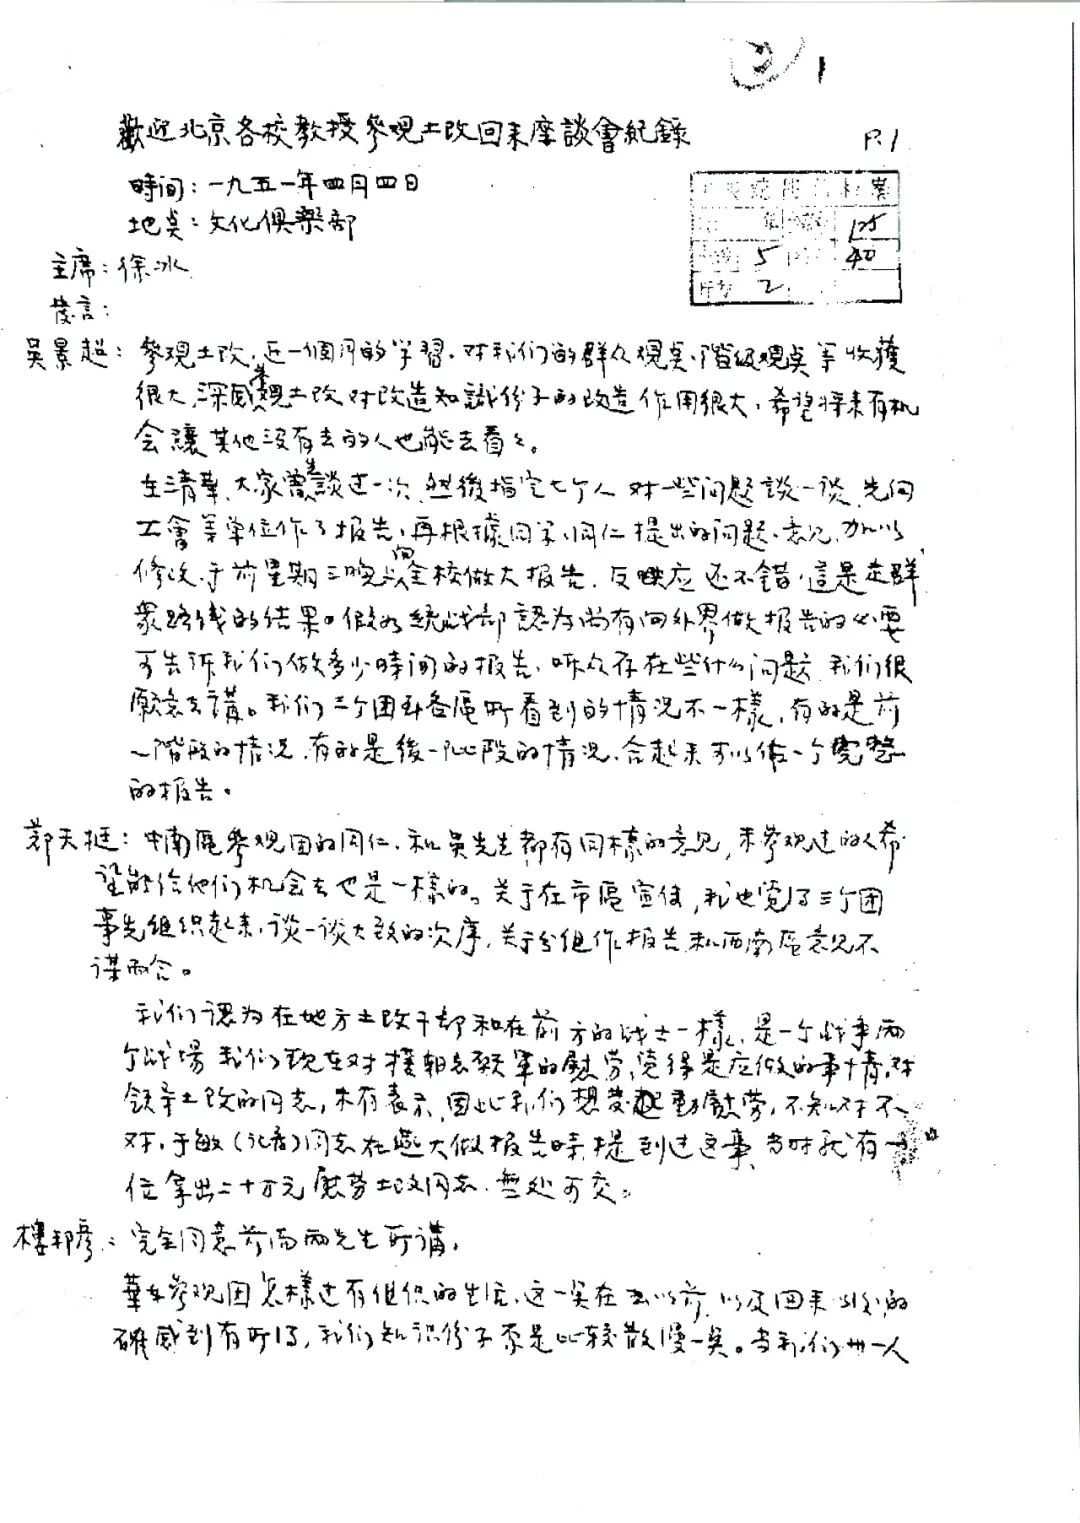 歡迎北京各校教授參覌土改回来座談會紀錄
P.1
時间：一九五一年四月四日
地奌：文化俱樂部
125
5
40
2
主席：徐冰
发言：
吳景超：參覌土改，近一個月的学習，对我们的群众覌奌、階级覌奌等收獲
很大，深感参覌土改对改造知識份子的改造作用很大，希望将来有机
会讓其他没有去的人也能去看々。
在清華，大家曾先談过一次，然後指定七个人对一些问題談一談，先向
工會等单位作了报告，再根據同学、同仁提出的问題、意见，加以
修改，于前星期三晚向全校做大报告，反映应还不错，這是走群
衆路线的结果。假如统战部認为尚有向外界做报告的必要
可告诉我们做多少時间的报告，听众存在些什么问題，我们很
願意去講。我们三个团和各區所看到的情况不一樣，有的是前
一階段的情况，有的是後一阶段的情况，合起来可以做一个完整
的报告。
郑天挺：中南區參观团的同仁，和吳先生都有同樣的意见，未參观过的人希
望能给他们机会去也是一樣的。关于在市區宣传，我也覚得三个团
事先组织起来，谈一谈大致的次序，关于分组作报告和西南區意见不
谋而合。
我们認为在地方土改干部和在前方的战士一樣，是一个战争两
个战場，我们现在对援朝志願軍的慰劳，覚得是应做的事情，对
领导土改的同志，未有表示，因此我们想发起動慰劳，不知对不
对，于敏（记者）同志在燕大做报告時提到过这事，当时就有一
位拿出二十万元慰劳土改同志，無处可交。
樓邦彦：完全同意前面两先生所講，
華东參观团怎樣过有组织的生活，这一奌在去以前，以及回来以後，的
確感到有所得，我们知识份子原是比较散漫一奌。当我们卅一人